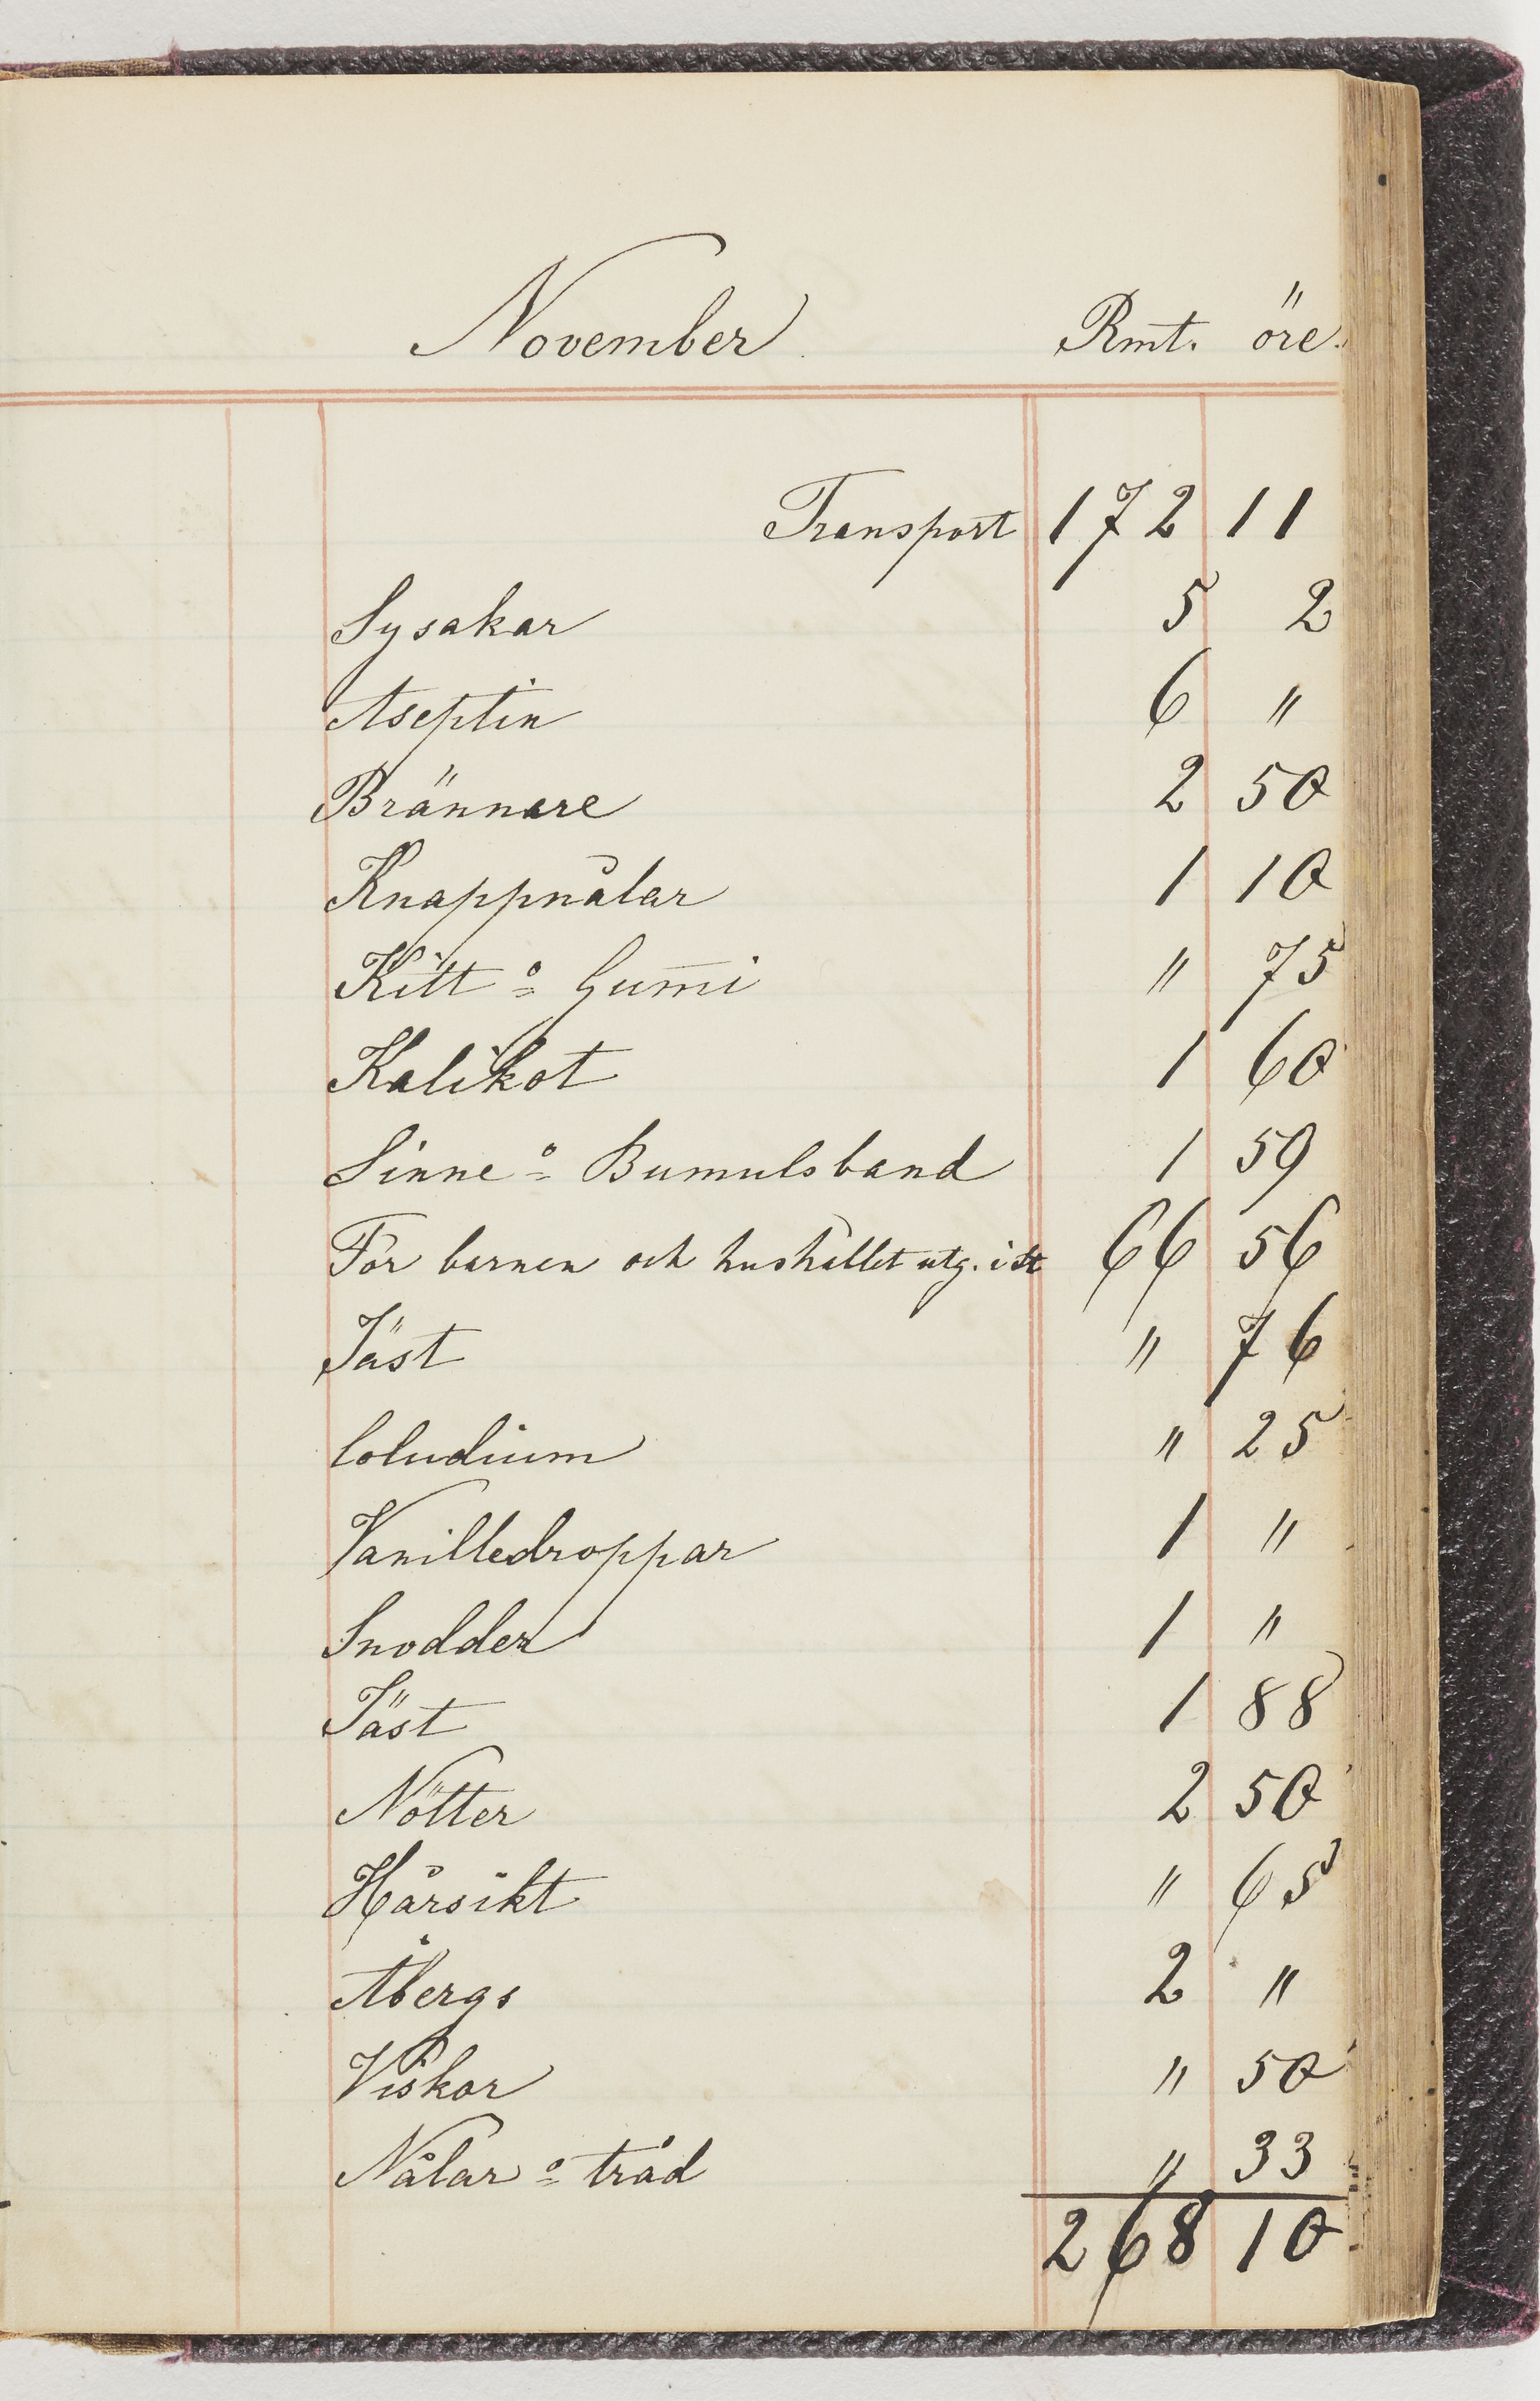 November Rmt. öre.
Transport 172 11
Sysakar 5 2
Aseptin 6 "
Brännare 2 50
Knappnålar 1 10
Kitt o Gum̄i " 75
Kalikot 1 60
Linne o Bumulsband 1 59
För barnen och hushållet utg. i st 66 56
Jäst " 76
Coludium " 25
Vanilledroppar 1 "
Snodder 1 "
Jäst 1 88
Nötter 2 50
Hårsikt " 65
Åbergs 2 "
Viskor " 50
Nålar o tråd " 33
268 10